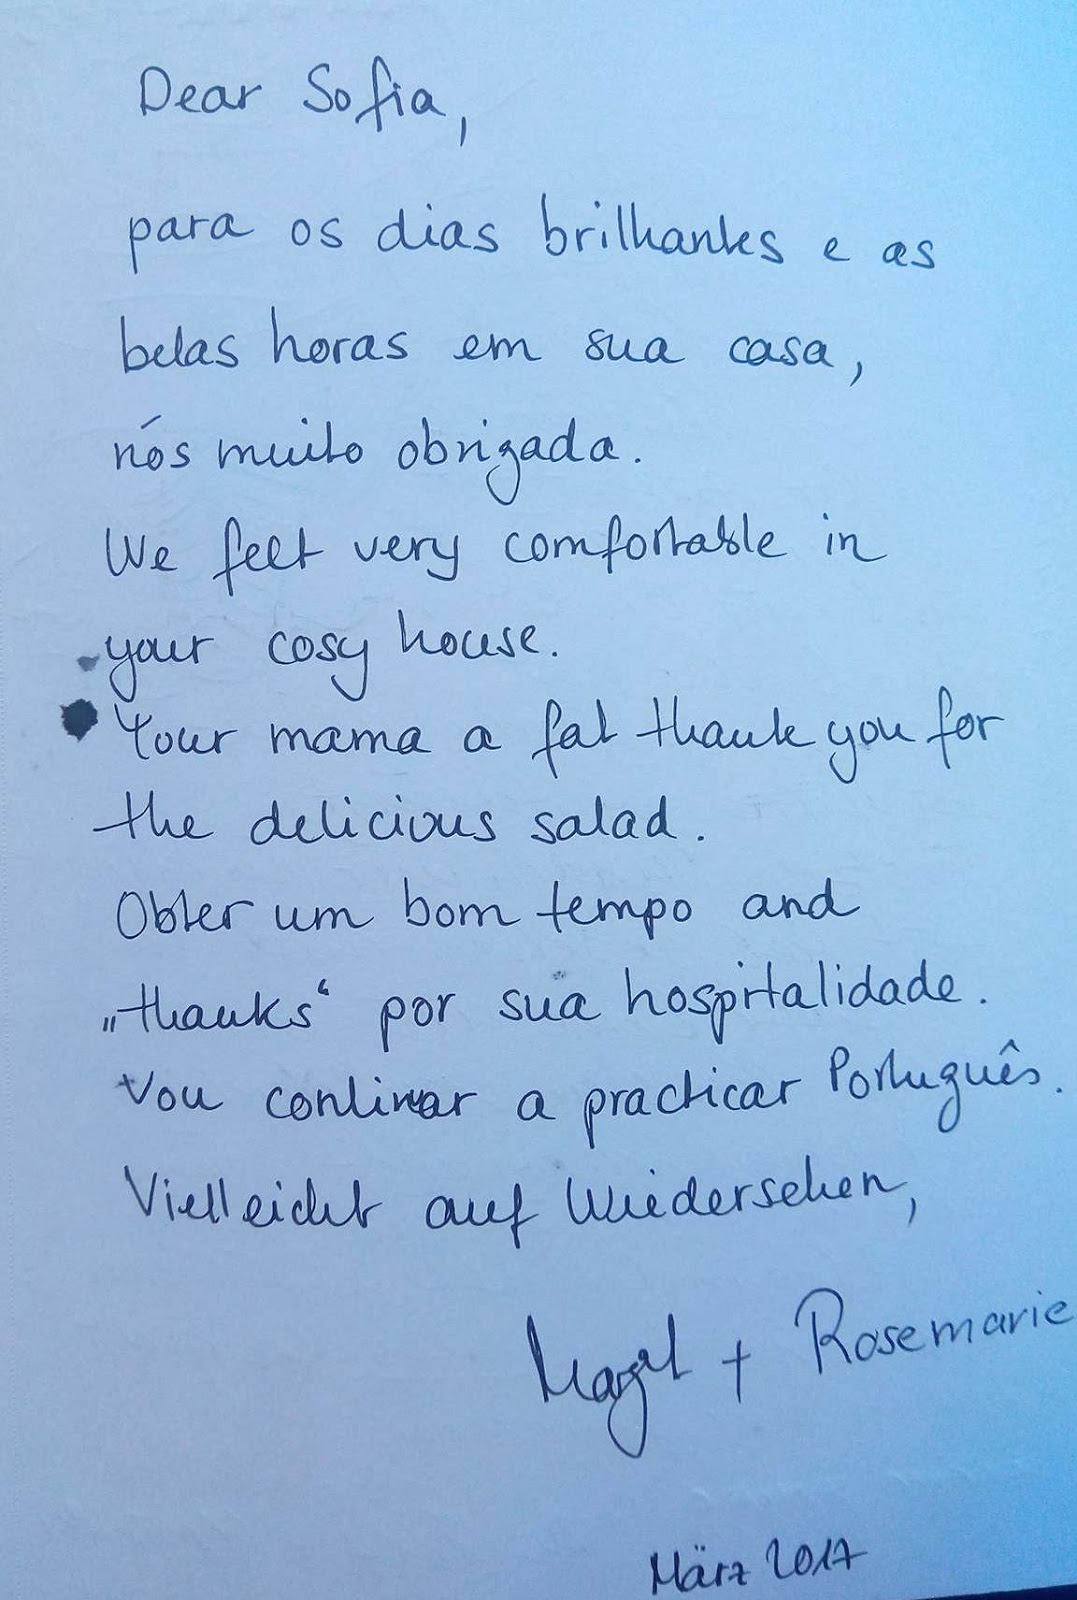 Dear Sofia,
para os dias brilhantes e as
belas horas em sua casa,
nós muito obrigada.
We felt very comfortable in
your cosy house.
Your mama a fat thank you for
the delicious salad.
Obter um bom tempo and
„thanks“ por sua hospitalidade.
Vou continuar a practicar Português.
Vielleicht auf Wiedersehen,
+ Rosemarie
März 2017